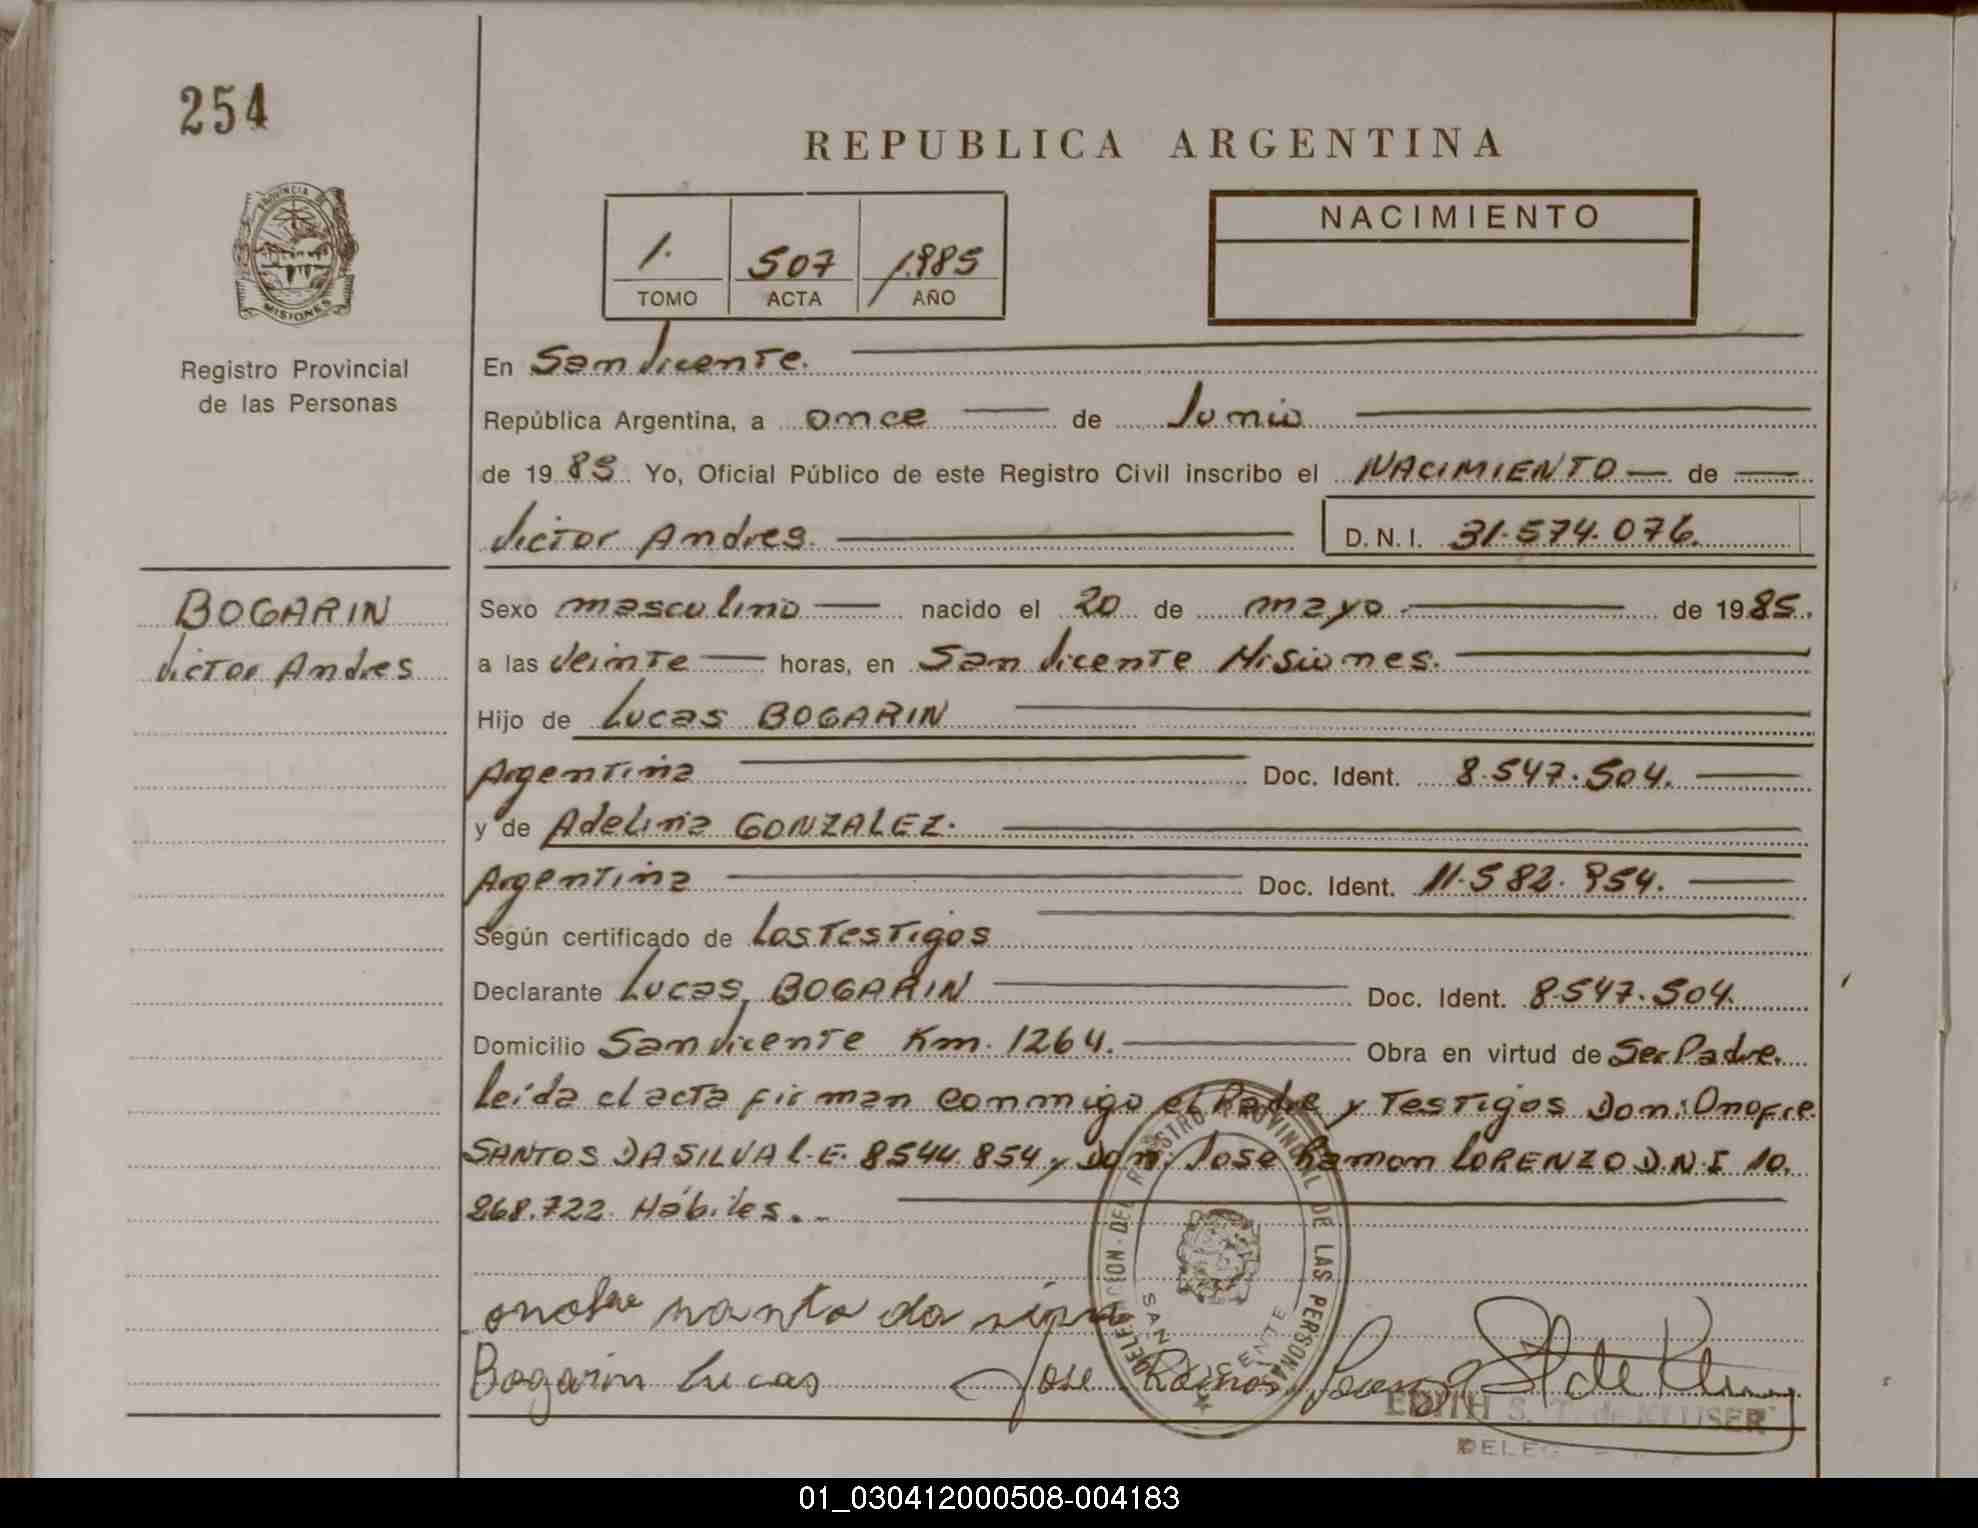 254
REPUBLICA ARGENTINA
PROVINCIA DE
MISIONES
1.
507
1985
TOMO
ACTA
AÑO
NACIMIENTO
Registro Provincial
de las Personas
En San Vicente.
República Argentina, a once de Junio
de 1985 Yo, Oficial Público de este Registro Civil inscribo el NACIMIENTO de
Victor Andres. D.N.I. 31.574.076.
BOGARIN
Victor Andres
Sexo masculino nacido el 20 de mayo de 1985.
a las veinte horas, en San Vicente Misiones.
Hijo de Lucas BOGARIN
Argentina Doc. Ident. 8.547.504.
y de Adelina GONZALEZ.
Argentina Doc. Ident. 11.582.954.
Según certificado de Los Testigos
Declarante Lucas BOGARIN Doc. Ident. 8.547.504.
Domicilio San Vicente Km. 1264. Obra en virtud de Ser Padre.
leída el acta firman conmigo el Padre y Testigos Don: Onofre
SANTOS DA SILVA L.E. 8544.854 y Don: Jose Ramon LORENZO D.N.I 10.
268.722 Hábiles.
DELEGACION DEL REGISTRO PROVINCIAL DE LAS PERSONAS
SAN VICENTE
onofre santo da silva
Bogarin Lucas
Jose Ramon
EDITH S. T. de KLUSER
DELEG
01_030412000508-004183